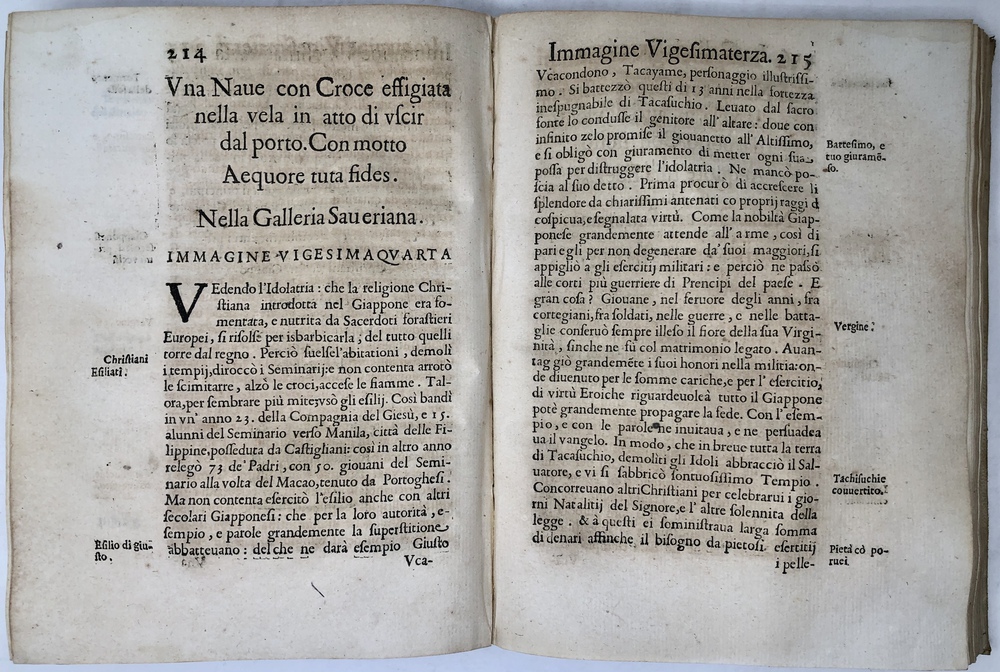 214
Vna Naue con Croce effigiata
nella vela in atto di vscir
dal porto. Con motto
Aequore tuta fides.
Nella Galleria Saueriana.
IMMAGINE VIGESIMAQVARTA
VEdendo l'Idolatria : che la religione Chri-
ſtiana introdotta nel Giappone era fo-
mentata, e nutrita da Sacerdoti foraſtieri
Europei, ſi riſolſe per isbarbicarla ; del tutto quelli
torre dal regno. Perciò ſuelſel'abitationi, demoli
i tempij, diroccò i Seminarij: e non contenta arrotò
le ſcimitarre, alzò le croci, acceſe le fiamme. Tal-
ora, per ſembrare più mite, vsò gli eſilij. Così bandì
in vn' anno 23. della Compagnia del Giesù, e 15.
alunni del Seminario verſo Manila, città delle Fi-
lippine, poſſeduta da Caſtigliani: così in altro anno
relegò 73 de' Padri, con 50. giouani del Semi-
nario alla volta del Macao, tenuto da Portogheſi.
Ma non contenta eſercitò l'eſilio anche con altri
ſecolari Giapponeſi : che per la loro autorità, e-
ſempio, e parole grandemente la ſuperſtitione
abbatteuano : del che ne darà eſempio Giuſto
Vca-
Chriſtiani
Eſiliati.
Eſilio di giu-
ſto.
Immagine Vigeſimaterza. 215
Vcacondono, Tacayame, perſonaggio illuſtriſſi-
mo. Si battezzò queſti di 13 anni nella fortezza
ineſpugnabile di Tacaſuchio. Leuato dal ſacro
fonte lo conduſſe il genitore all' altare : doue con
infinito zelo promiſe il giouanetto all' Altiſſimo,
e ſi obligò con giuramento di metter ogni ſua
poſſa per diſtruggere l'idolatria. Ne mancò po-
ſcia al ſuo detto. Prima procurò di accreſcere li
ſplendore da chiariſſimi antenati co proprij raggi d
coſpicua, e ſegnalata virtù. Come la nobiltà Giap-
poneſe grandemente attende all' arme, così di
pari egli per non degenerare da' ſuoi maggiori, ſi
appigliò a gli eſercitij militari : e perciò ne paſsò
alle corti più guerriere di Prencipi del paeſe. E
gran coſa ? Giouane, nel feruore degli anni, fra
cortegiani, fra ſoldati, nelle guerre, e nelle batta-
glie conſeruò ſempre illeſo il fiore della ſua Virgi-
nità, ſinche ne fù col matrimonio legato. Auan-
taggiò grandemẽte i ſuoi honori nella militia: on-
de diuenuto per le ſomme cariche, e per l' eſercitio,
di virtù Eroiche riguardeuole à tutto il Giappone
potè grandemente propagare la fede. Con l' eſem-
pio, e con le parole ne inuitaua, e ne perſuadea
ua il vangelo. In modo, che in breue tutta la terra
di Tacaſuchio, demoliti gli Idoli abbracciò il Sal-
uatore, e vi ſi fabbricò ſontuoſiſſimo Tempio.
Concorreuano altri Chriſtiani per celebrarui i gio-
rni Natalitij del Signore, e l' altre ſolennita della
legge. & à queſti ei ſeminiſtraua larga ſomma
di denari affinche il biſogno da pietoſi eſertitij
i pelle-
Batteſimo, e
ſuo giuramẽ-
ſo.
Vergine.
Tachiſuchie
couuertito.
Pietà cò po-
ruei